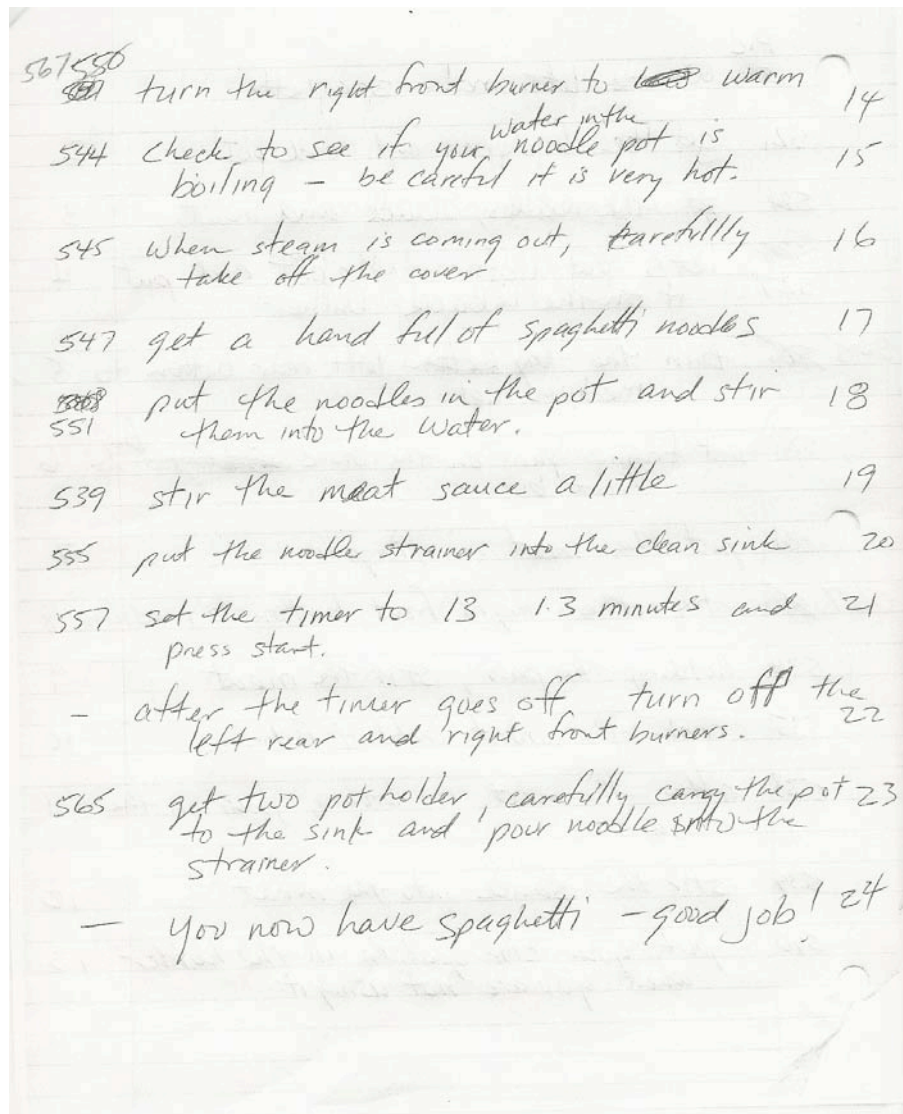 567 556
turn the right front burner to warm 14
water in the
544 check to see if your noodle pot is 15
boiling - be careful it is very hot.
545 when steam is coming out, carefullly 16
take off the cover
547 get a hand ful of spaghetti noodles 17
put the noodles in the pot and stir 18
551 them into the water.
539 stir the meat sauce a little 19
555 put the noodle strainer into the clean sink 20
557 set the timer to 13 1.3 minutes and 21
press start.
- after the timer goes off turn off the
left rear and right front burners. 22
565 get two pot holder, carefully carry the pot 23
to the sink and pour noodle into the
strainer.
- you now have spaghetti - good job! 24